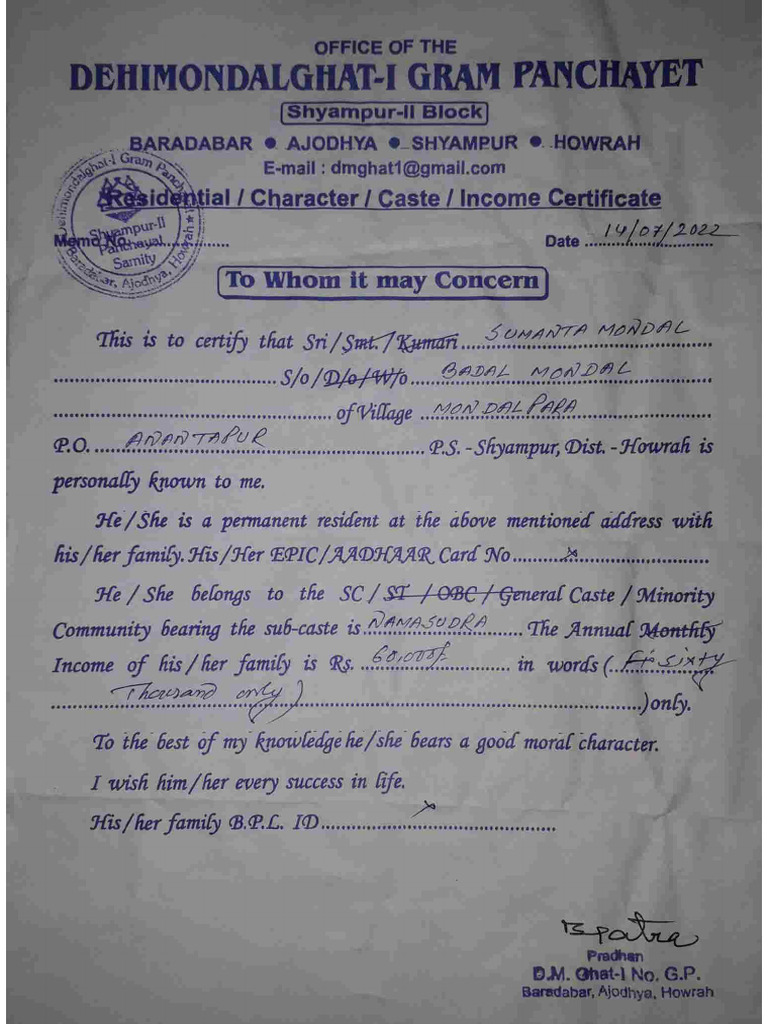 OFFICE OF THE
DEHIMONDALGHAT-I GRAM PANCHAYET
Shyampur-II Block
BARADABAR ● AJODHYA ● SHYAMPUR ● HOWRAH
E-mail : dmghat1@gmail.com
Residential / Character / Caste / Income Certificate
Dehimondalghat-I Gram Panchayat
Shyampur-II
Panchayat
Samity
Baradabar, Ajodhya, Howrah
Memo No. ..................
Date ..14/07/2022
To Whom it may Concern
This is to certify that Sri/Smt./Kumari ....SUMANTA MONDAL
.................................... S/o/D/o/W/o....BADAL MONDAL
.................................... of Village ..MONDALPARA
P.O. ....ANANTAPUR.................... P.S. -Shyampur, Dist. -Howrah is
personally known to me.
He/She is a permanent resident at the above mentioned address with
his/her family. His/Her EPIC/AADHAAR Card No..........x....................
He / She belongs to the SC/ ST / OBC / General Caste / Minority
Community bearing the sub-caste is NAMASUDRA...... The Annual Monthly
Income of his/her family is Rs. ..60,000/-.......... in words (.. Sixty
Thousand only).................................................)only.
To the best of my knowledge he/she bears a good moral character.
I wish him/her every success in life.
His/her family B.P.L. ID...............x..................
B Patra
Pradhan
D.M. Ghat-I No. G.P.
Baradabar, Ajodhya, Howrah